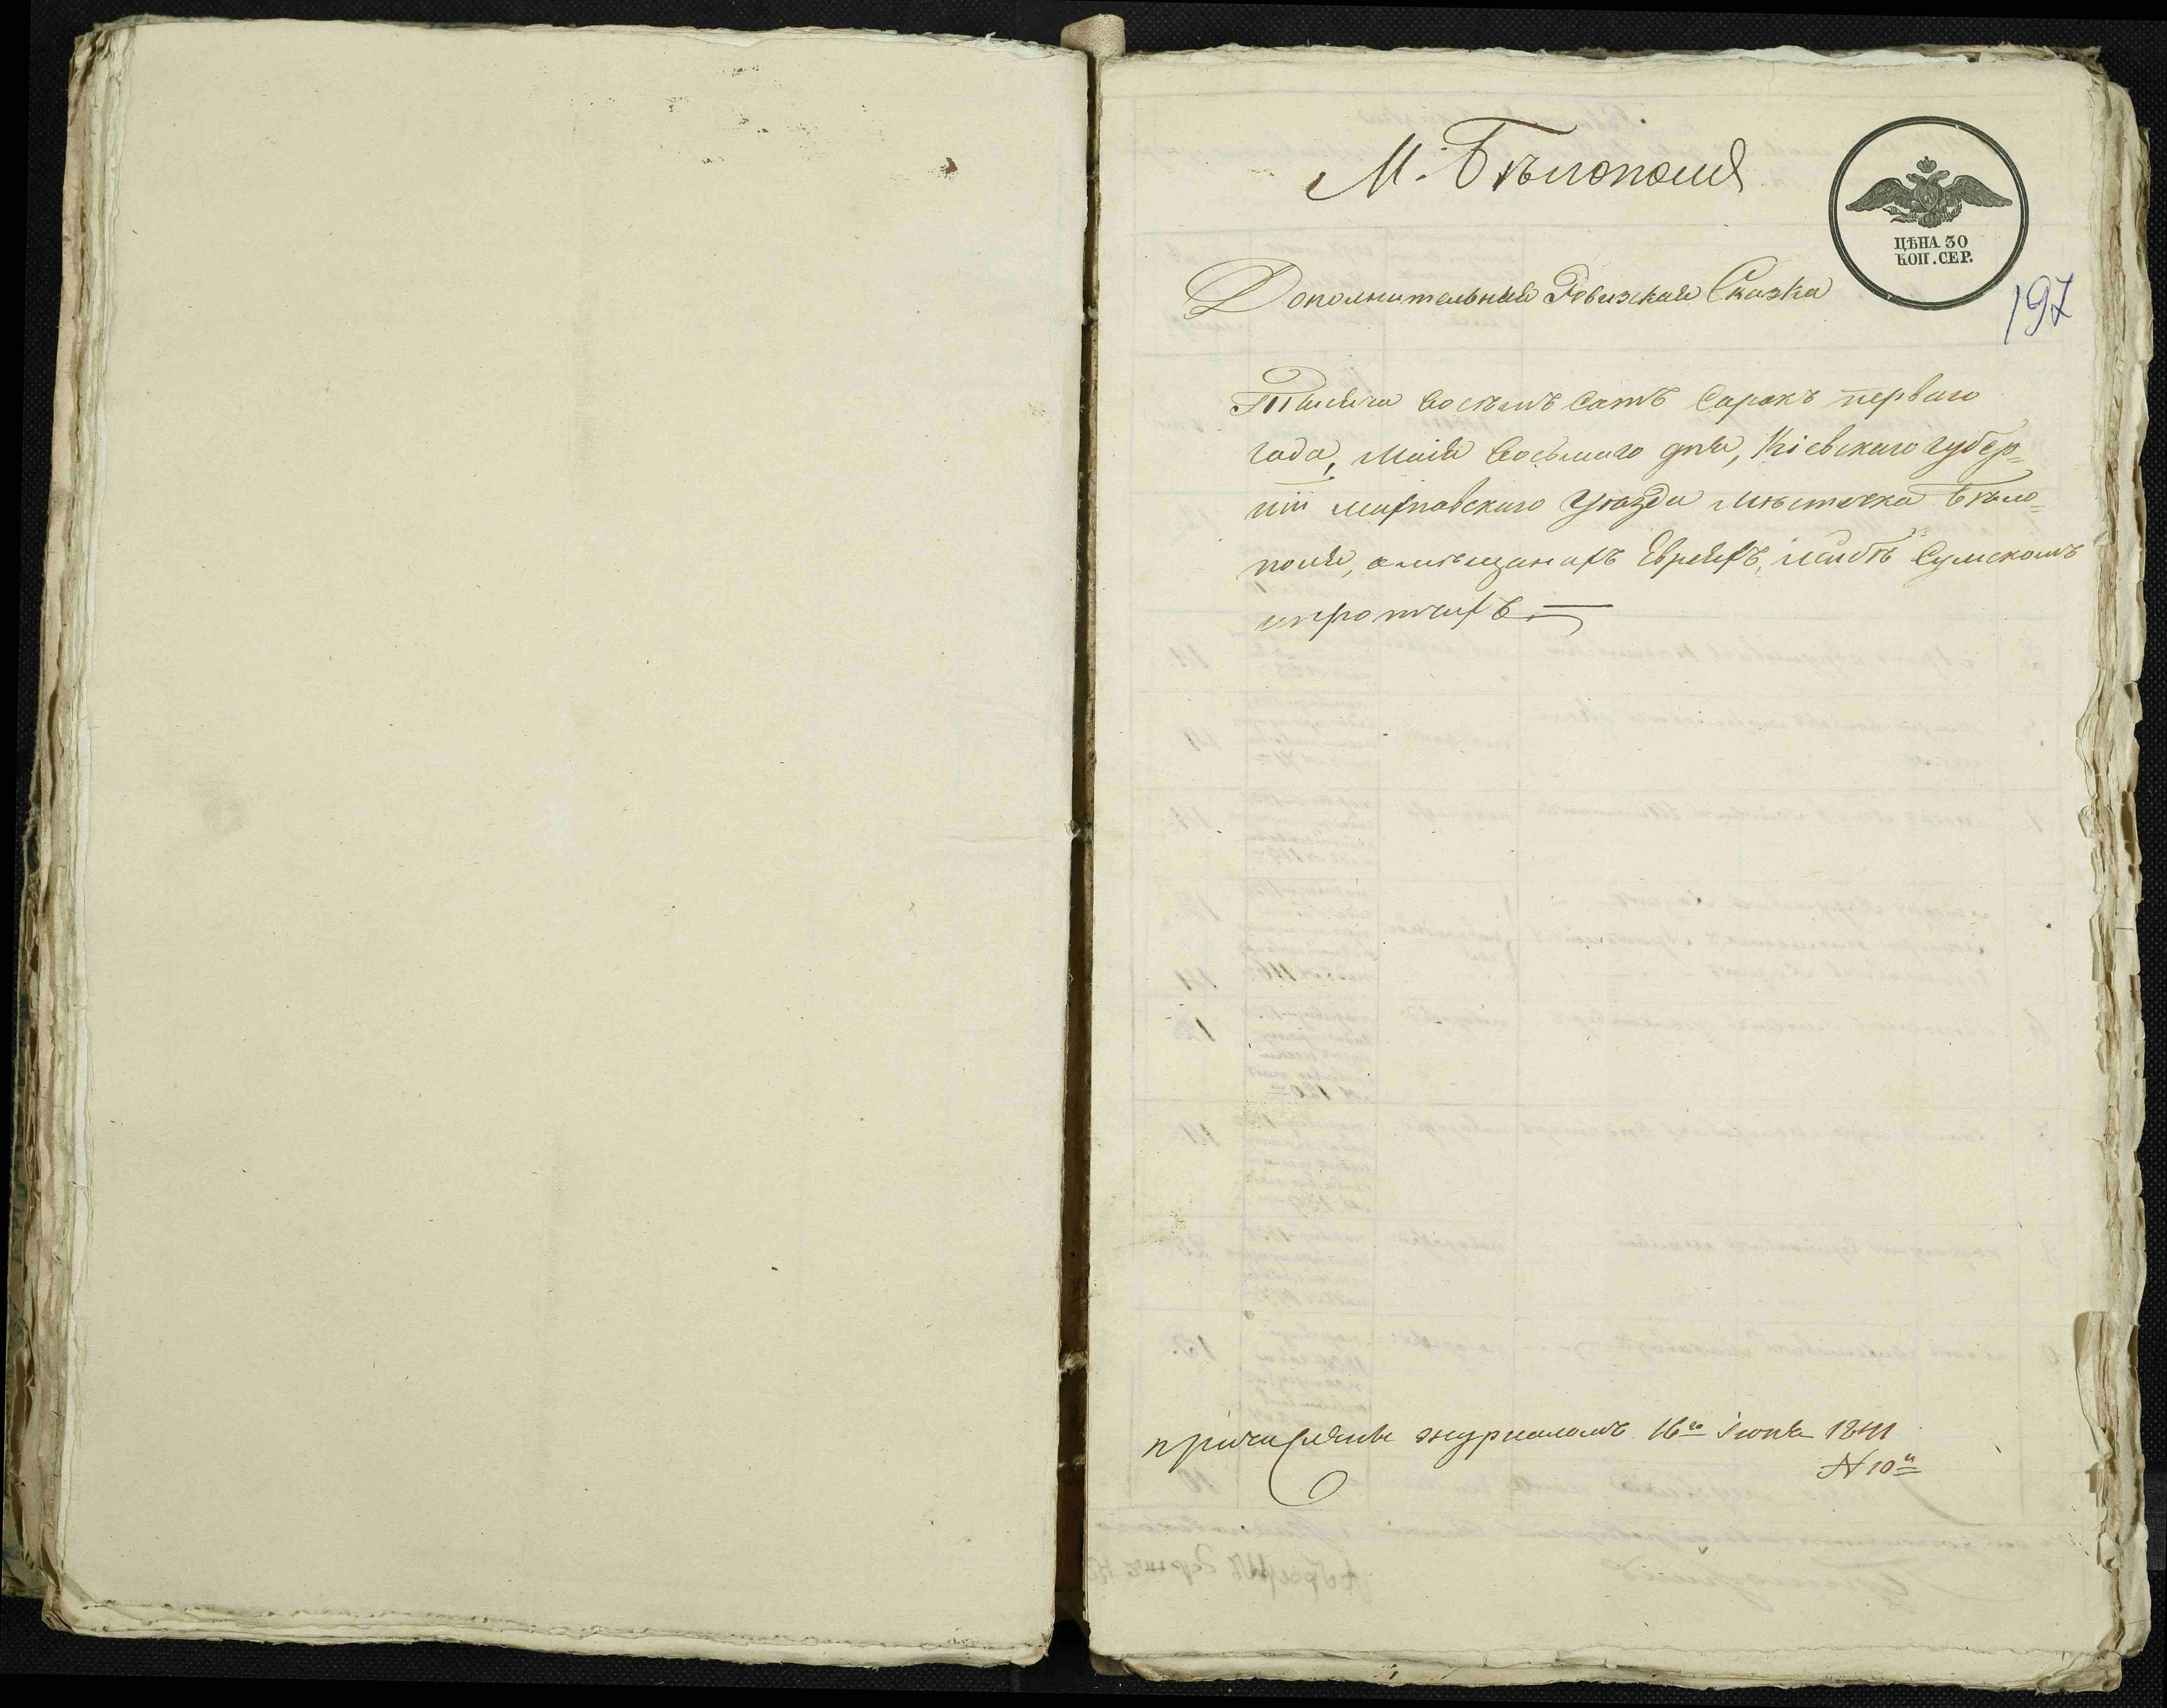 М. Бѣлополя
ЦѢНА 30
КОП. СЕР.
197
Дополнительная Ревизская Сказка
Тысяча восемъ сотъ сорокъ перваго
года, Маія восьмаго дня, Кіевскаго губер=
ніи Махновскаго уѣзда Мѣстечка Бѣло=
поля, о мѣщанахъ Евреяхъ, Сумскомъ
ипротчихъ
причислены журналомъ 16го Іюня 1841
N 10й